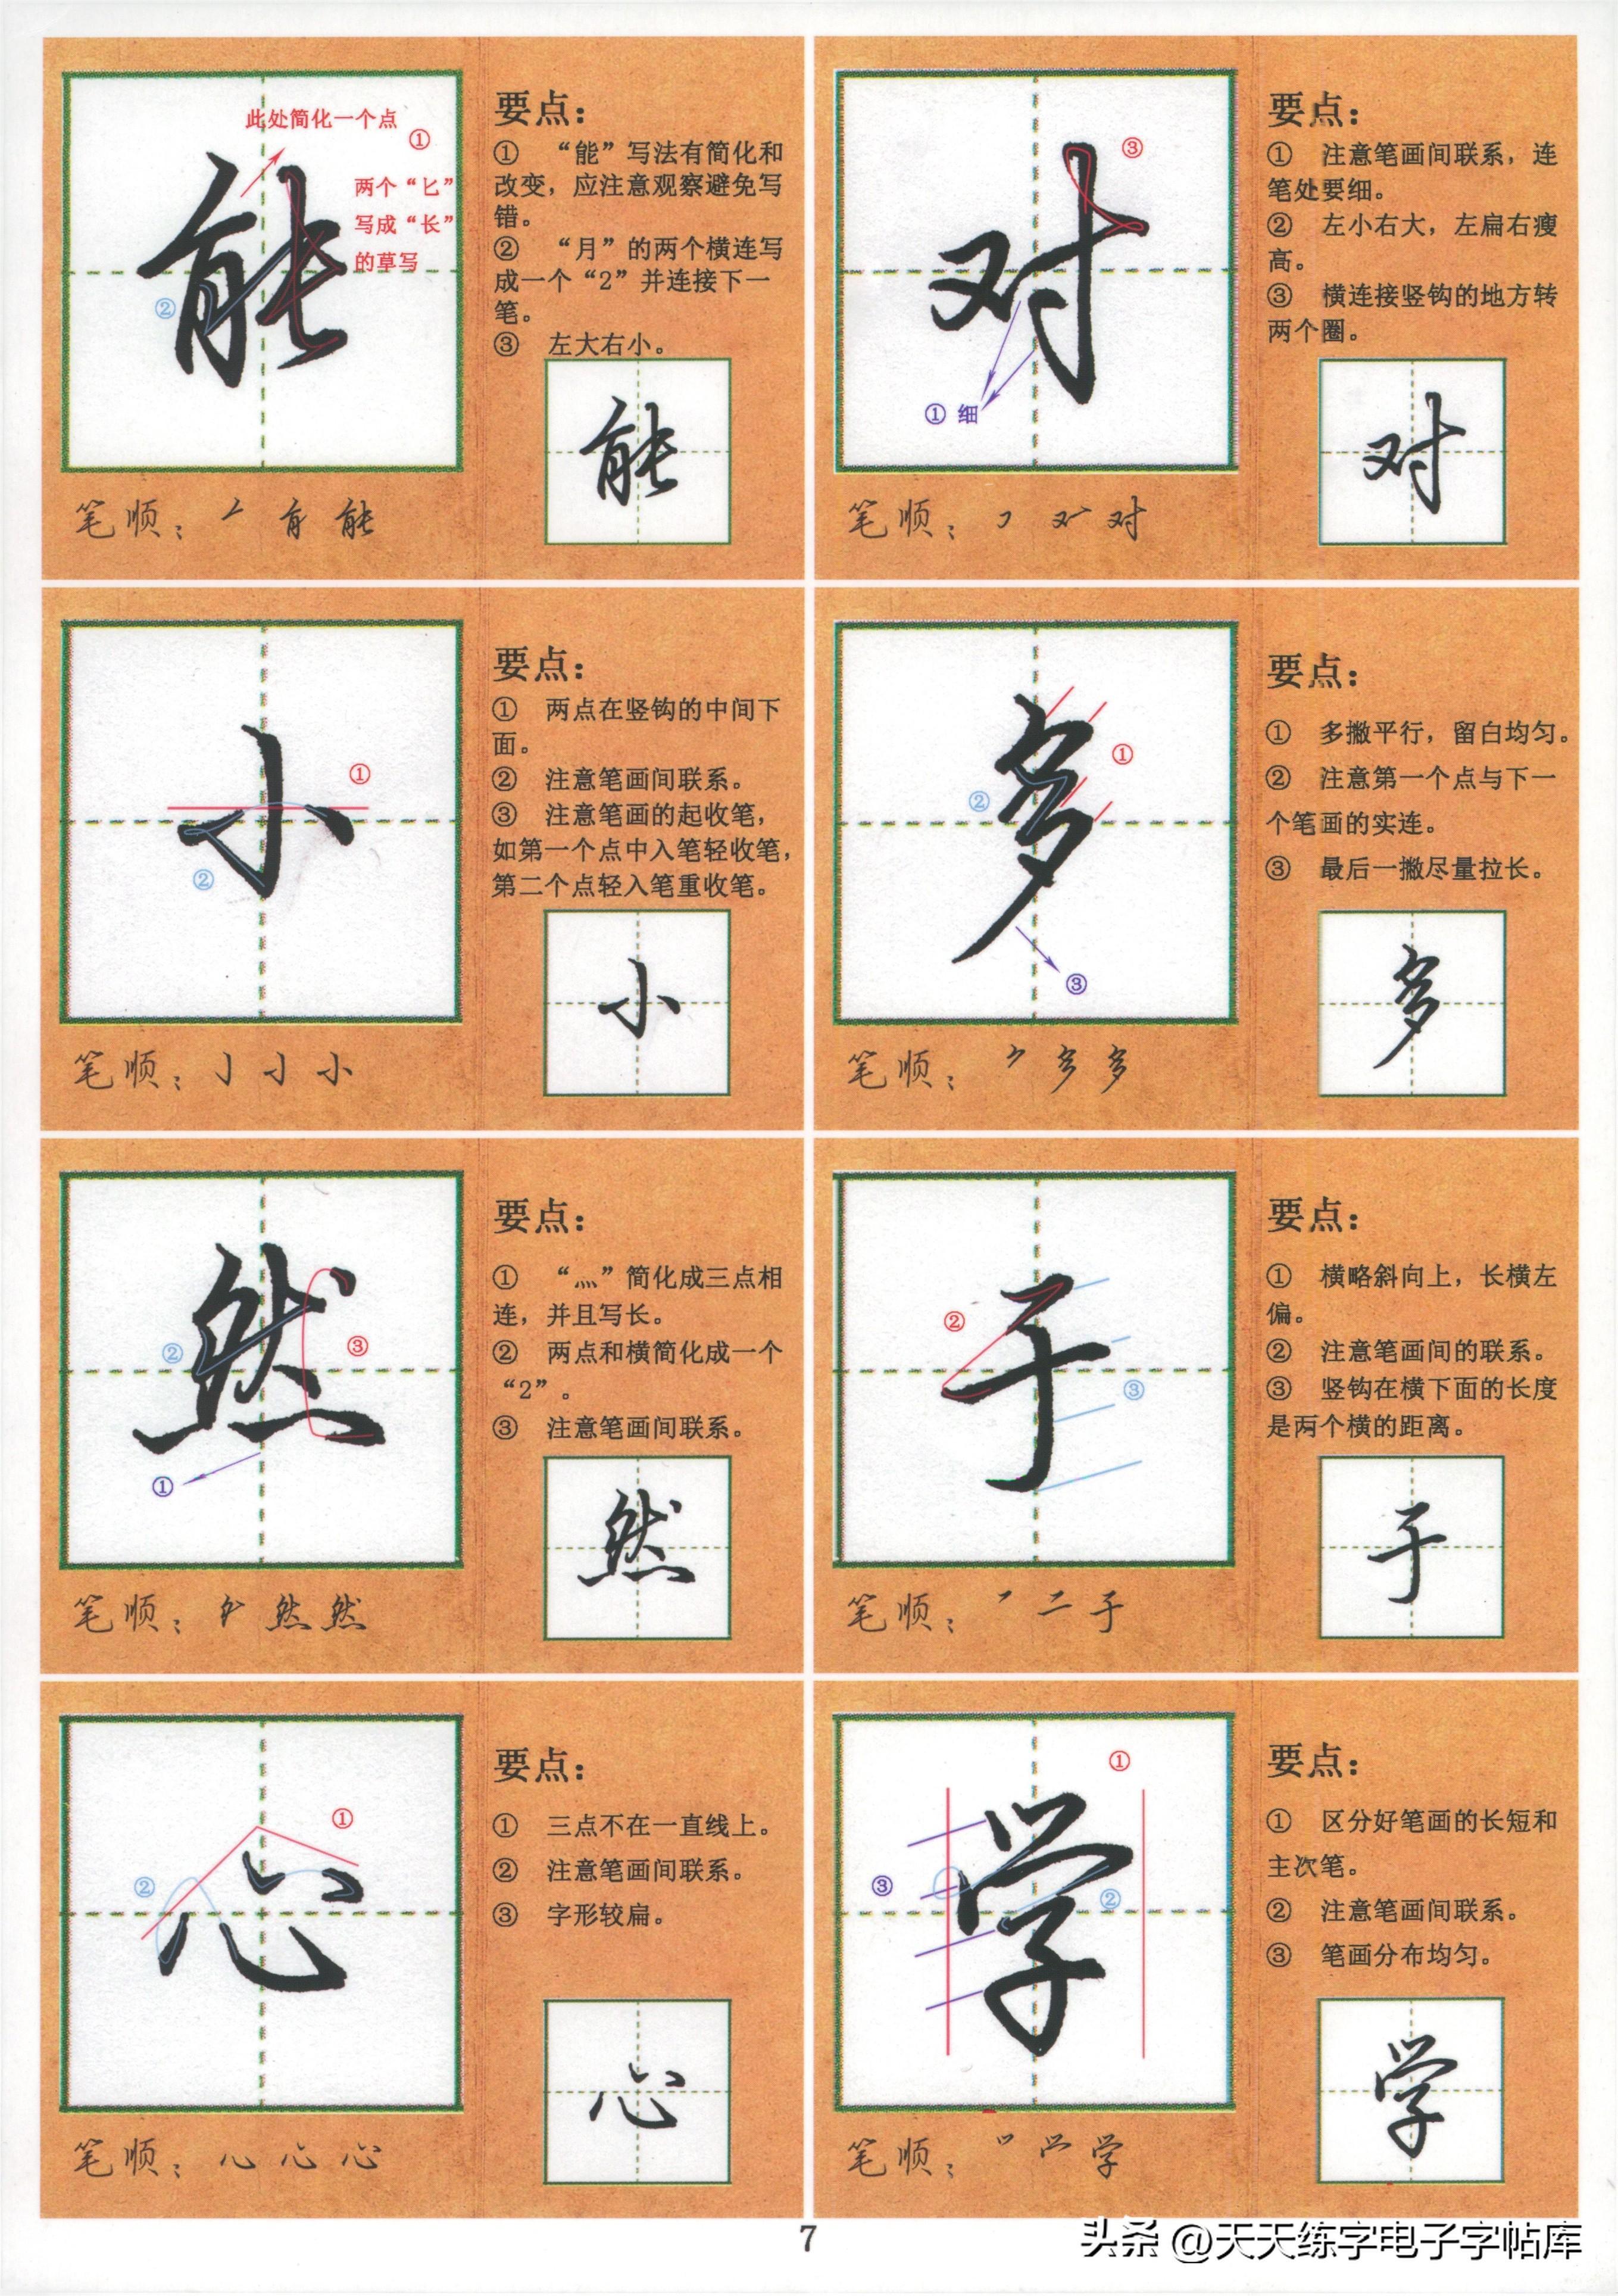 此处简化一个点
①
两个“匕”
写成“长”
的草写
②
能
要点：
① “能”写法有简化和
改变，应注意观察避免写
错。
② “月”的两个横连写
成一个“2”并连接下一
笔。
③ 左大右小。
能
笔顺：能
③
对
① 细
要点：
① 注意笔画间联系，连
笔处要细。
② 左小右大，左扁右瘦
高。
③ 横连接竖钩的地方转
两个圈。
对
笔顺：对
①
小
②
要点：
① 两点在竖钩的中间下
面。
② 注意笔画间联系。
③ 注意笔画的起收笔，
如第一个点中入笔轻收笔，
第二个点轻入笔重收笔。
小
笔顺：小
①
②
多
③
要点：
① 多撇平行，留白均匀。
② 注意第一个点与下一
个笔画的实连。
③ 最后一撇尽量拉长。
多
笔顺：多 多
②
③
然
①
要点：
① “灬”简化成三点相
连，并且写长。
② 两点和横简化成一个
“2”。
③ 注意笔画间联系。
然
笔顺：然 然
②
③
于
要点：
① 横略斜向上，长横左
偏。
② 注意笔画间的联系。
③ 竖钩在横下面的长度
是两个横的距离。
于
笔顺：二 于
①
②
心
要点：
① 三点不在一直线上。
② 注意笔画间联系。
③ 字形较扁。
心
笔顺：心 心
①
③
②
学
要点：
① 区分好笔画的长短和
主次笔。
② 注意笔画间联系。
③ 笔画分布均匀。
学
笔顺：学
7
头条 @天天练字电子字帖库